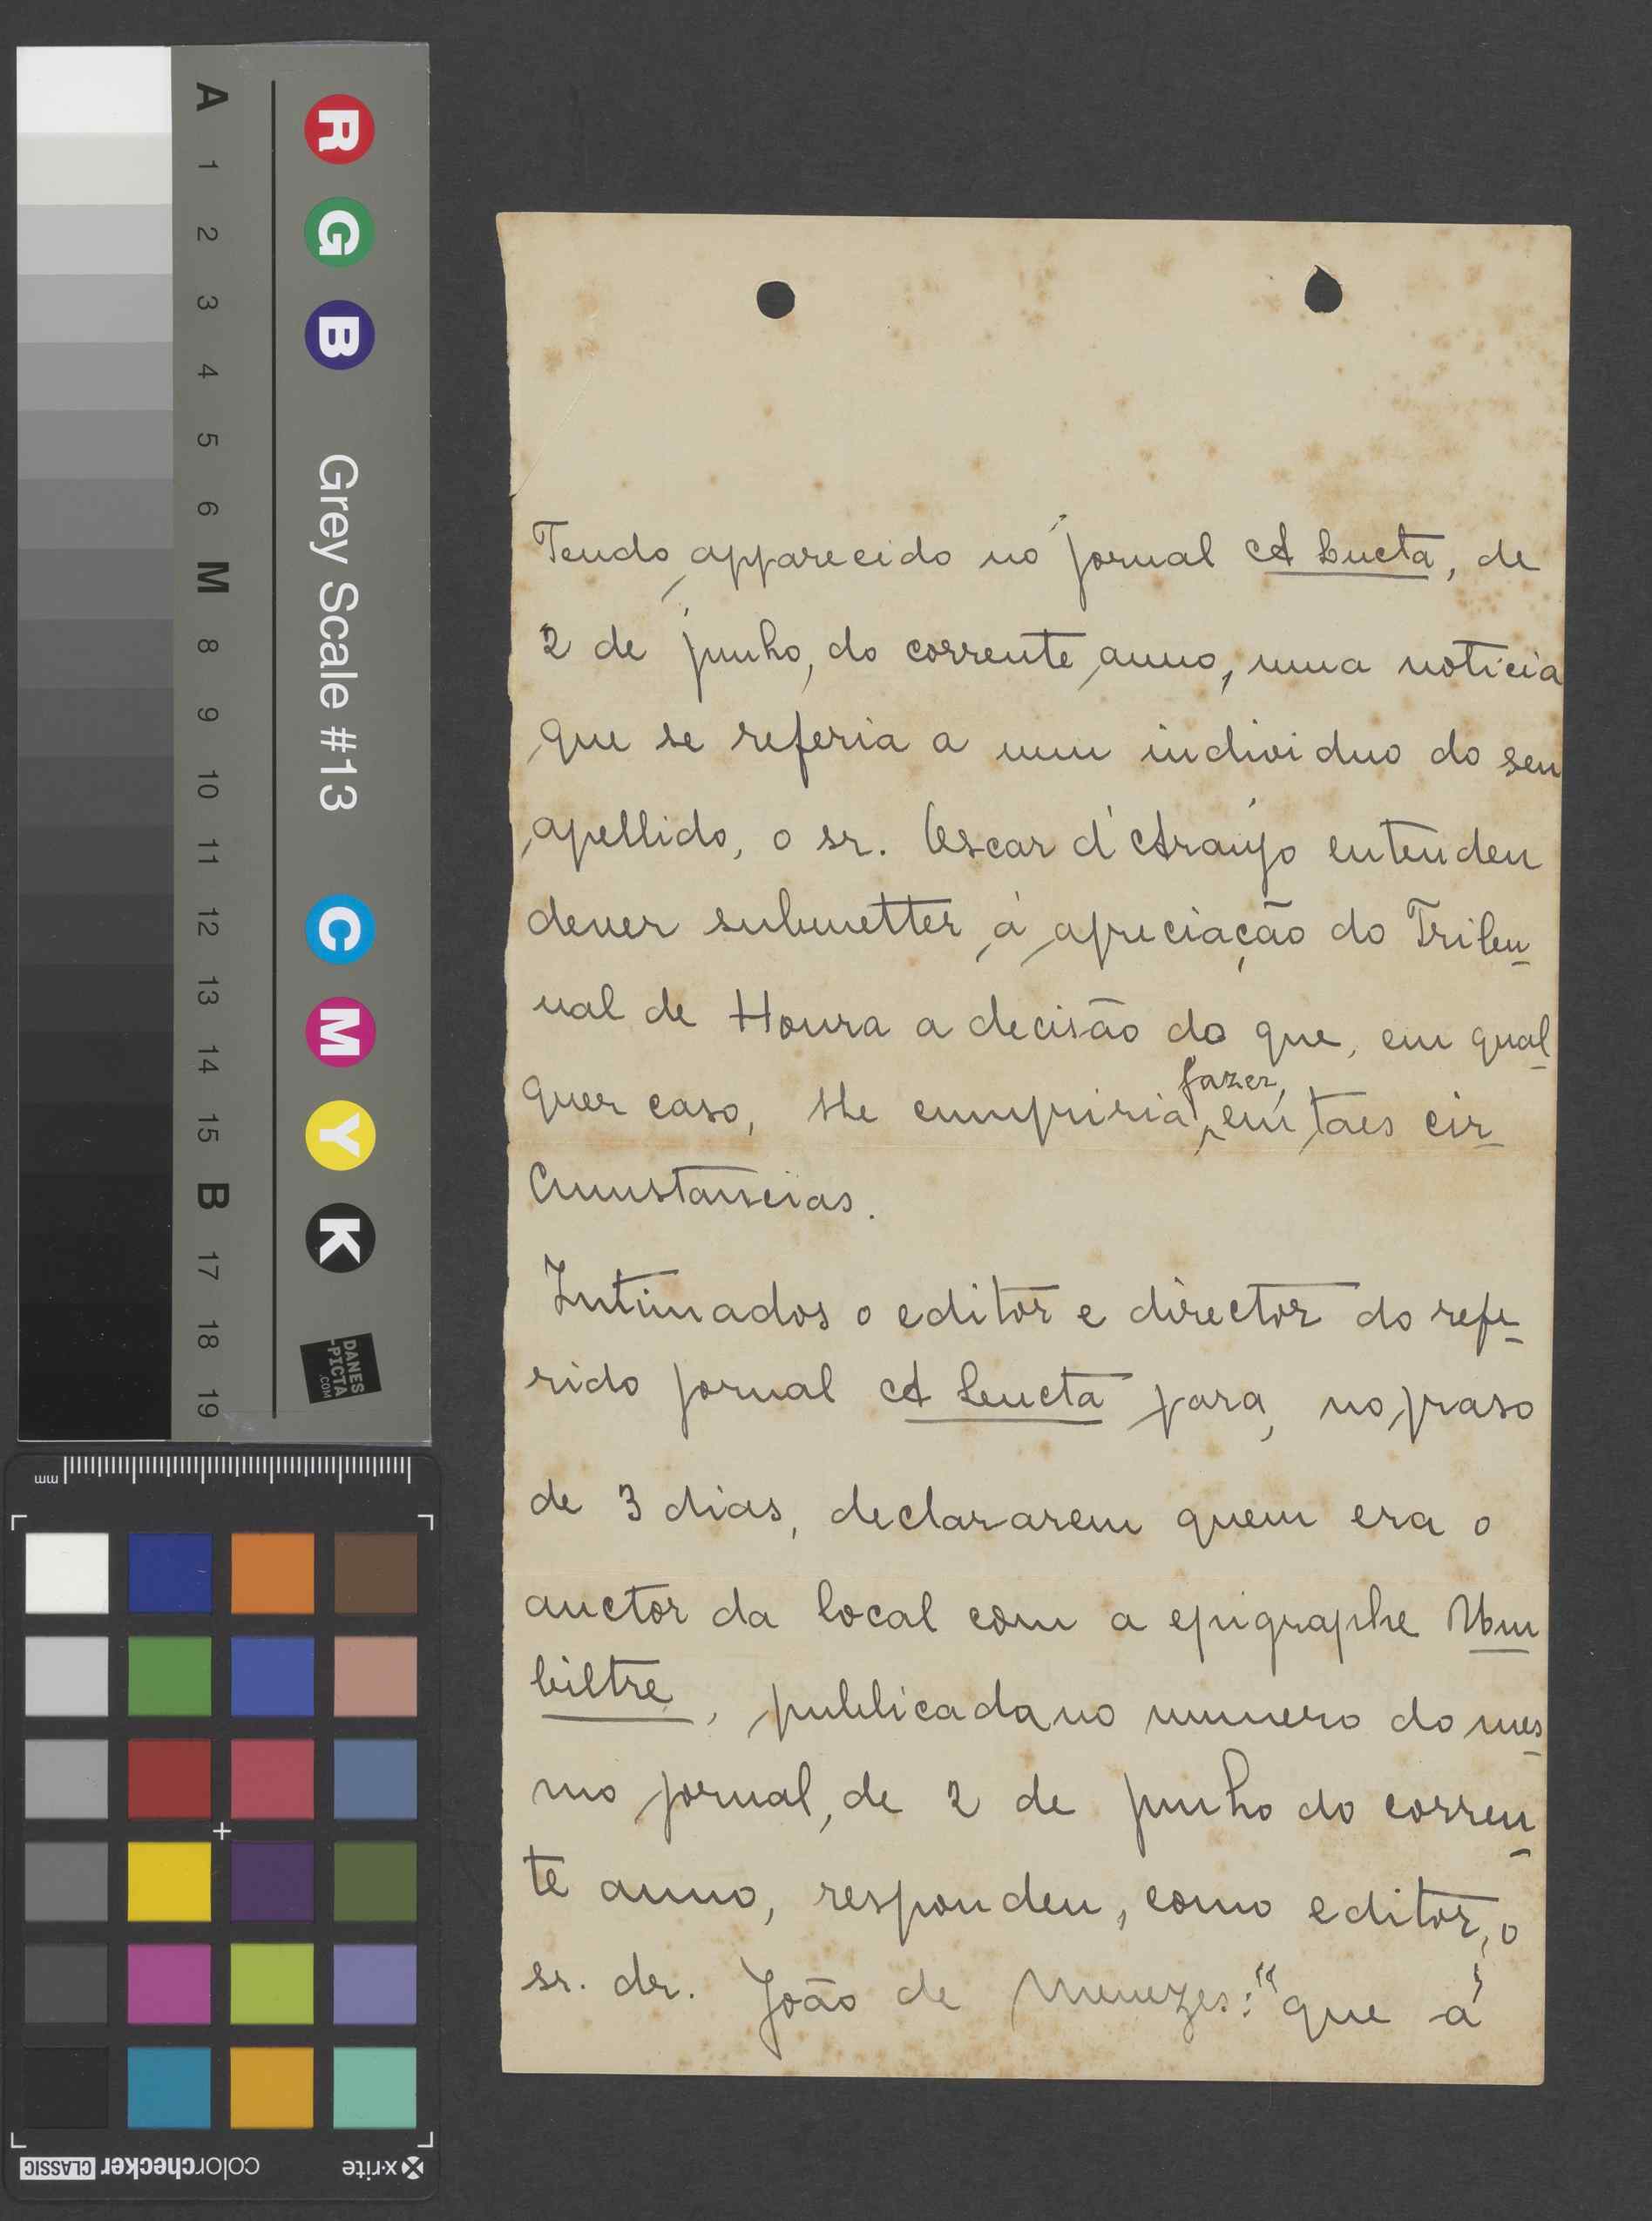 A 1 2 3 4 5 6 M 8 9 10 11 12 13 14 15 B 17 18 19
R G B Grey Scale #13 C M Y K
DANES
-PICTA
.COM
mm
x-rite
colorchecker CLASSIC
Tendo apparecido no jornal A Lucta, de
2 de junho, do corrente anno, uma noticia
que se referia a um individuo do seu
apellido, o sr. Oscar d'Araujo entendeu
dever submetter á apreciação do Tribu-
nal de Honra a decisão do que, em qual-
quer caso, lhe cumpriria fazer, em taes cir-
cumstancias.
Intimados o editor e director do refe-
rido jornal A Lucta para, no praso
de 3 dias, declararem quem era o
auctor da local com a epigraphe Um
biltre, publicada no numero do mes-
mo jornal, de 2 de junho do corren-
te anno, respondeu, como editor, o
sr. dr. João de Menezes: "que a